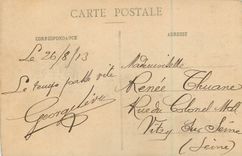 CARTE POSTALE
CORRESPONDANCE
ADRESSE
Le 26/8/13
Le temps passe vite
Mademoiselle
Renée Thuane
Rue du Colonel
Vitry sur Seine
(Seine)